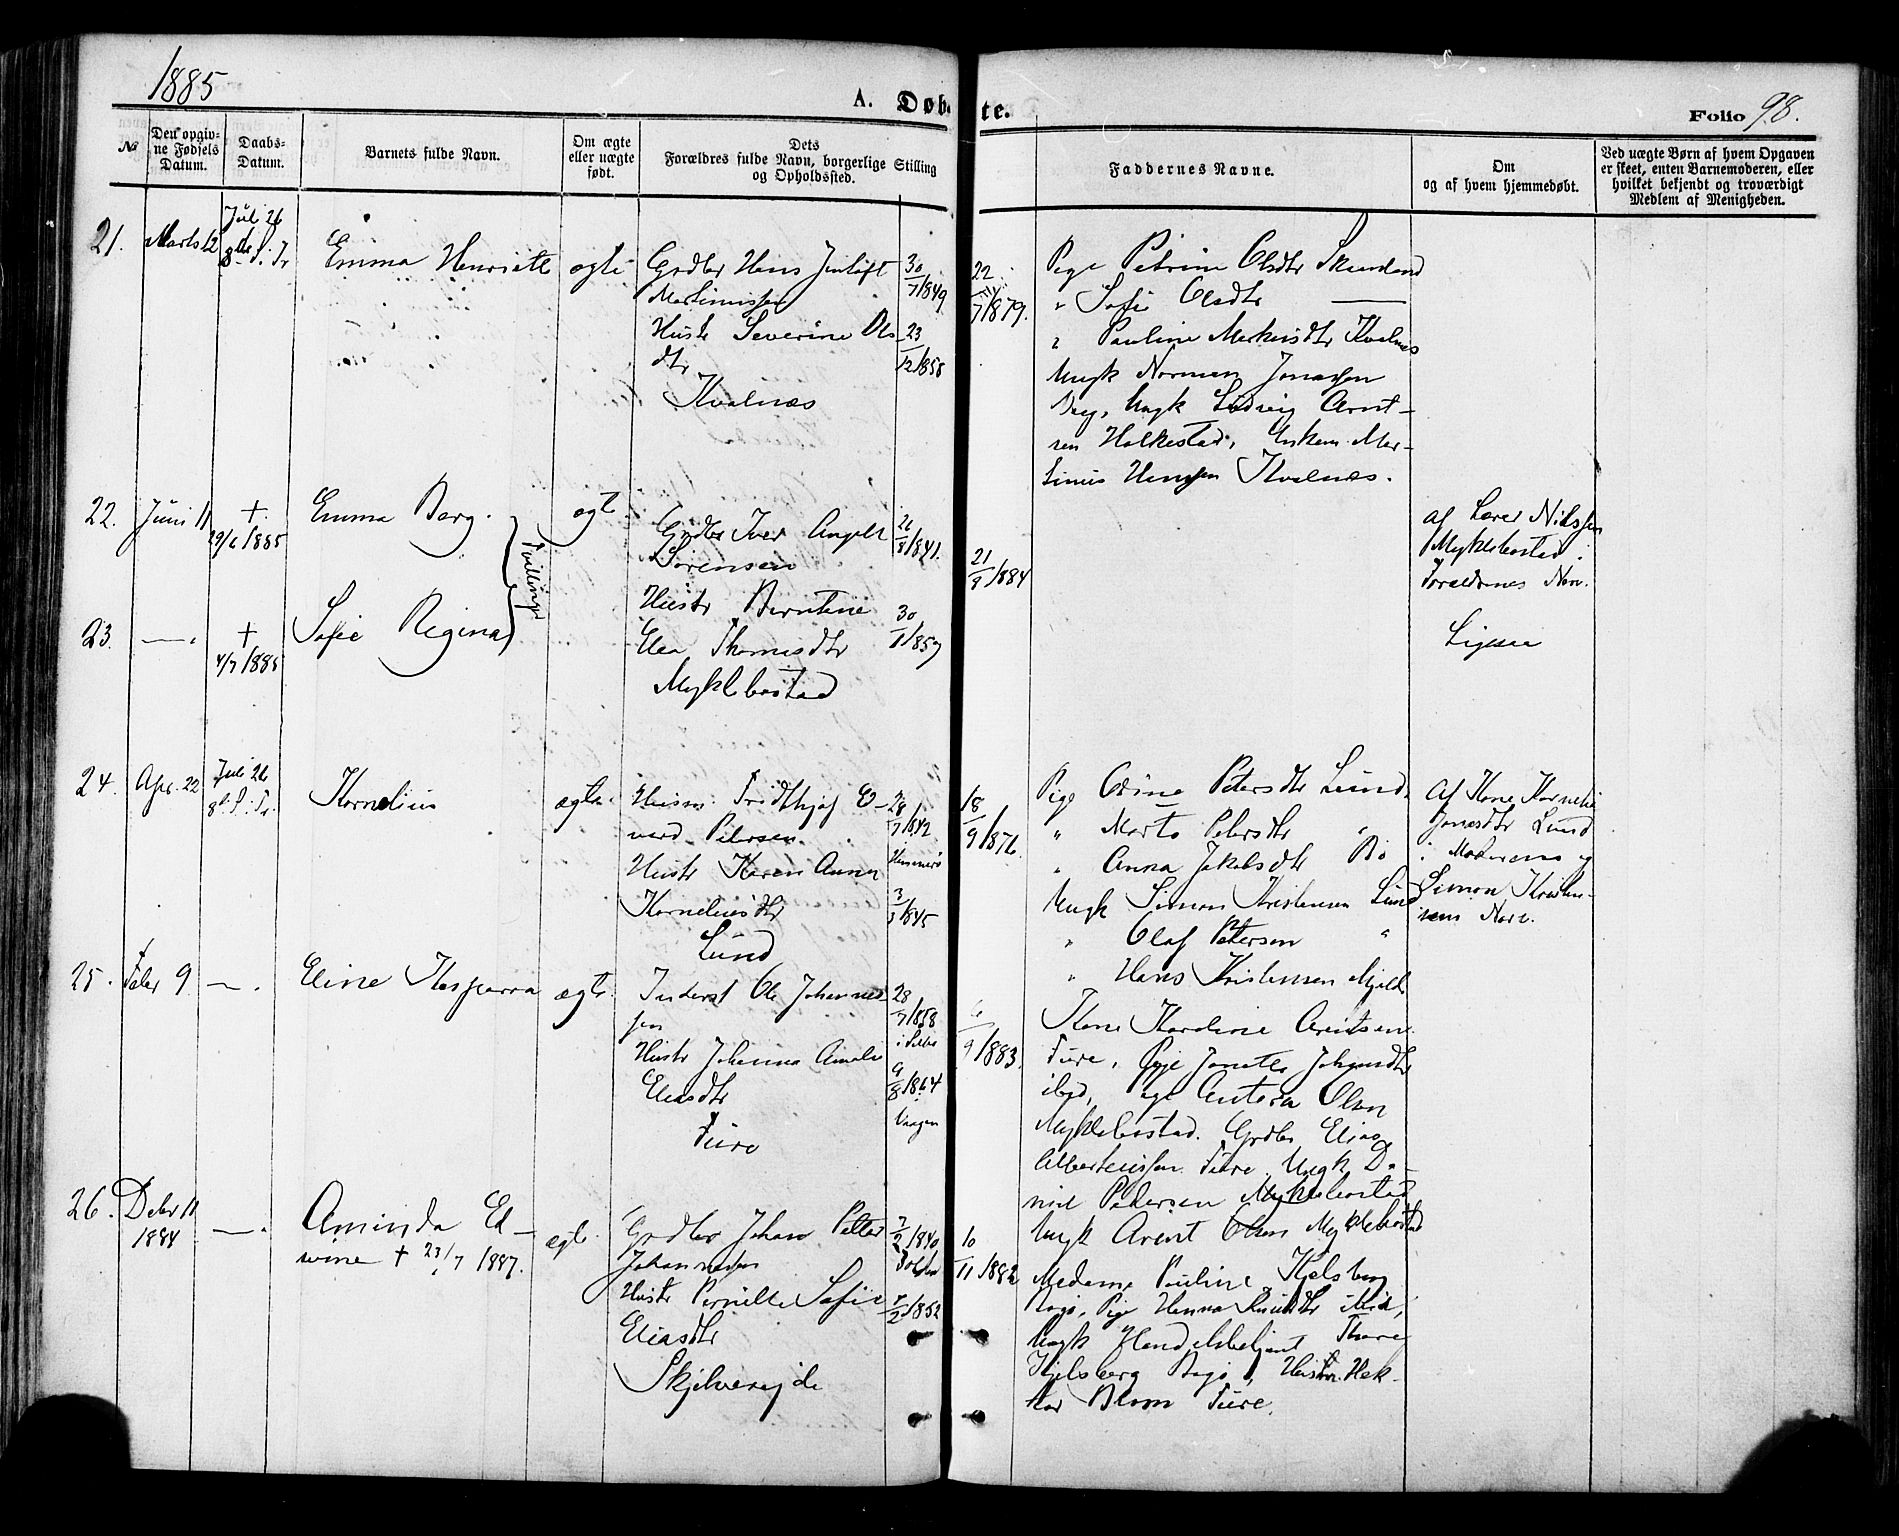 1885
A. Døbte.
Folio 98.
№
Den opgivne Fødsels Datum.
Daabs-Datum.
Barnets fulde Navn.
Om ægte eller uægte født.
Dets Forældres fulde Navn, borgerlige Stilling og Opholdssted.
Faddernes Navne.
Om og af hvem hjemmedøbt.
Ved uægte Børn af hvem Opgaven er skeet, enten Barnemoderen, eller hvilket bekjendt og troværdigt Medlem af Menigheden.
21.
Marts 12
Juli 26
8de S. Tr
Emma Henriette
ægte
Grdbr Hans Jentoft
Martinussen
30/7 1849
Hustr Severine Ols
dtr
23/12 1858
Kvalnæs
22/7 1879.
Pige Petrine Olsdtr Skundand
" Sofie Olsdtr ——
" Pauline Markusdtr Kvalnæs
Ungk Norman Jonassen
Ungk Ludvig Arnt-
sen Holkestad, Enkem. Mar-
tinus Hanssen Kvalnæs.
22.
Juni 11
†
29/6 1885
Emma Berg.
Tvillinger
ægte
Grdbr Iver Angell
Sørensen
1841.
Hustr Berntine
Elea Thomasdtr
30/1 1857
Myklebostad
21/8 1884
af Lærer Nilssen
Myklebostad i
Forældrenes Nærv.
23.
—"
†
4/7 1885
Sofie Regina
Ligesaa
24.
Apr. 22
Juli 26
8de S. Tr.
Kornelius
ægte
Husm. Fridthjof Ed-
vard Petersen
28/7 1842
Hustr Karen Anna
Korneliusdtr
3/3 1845
Lund
18/9 1876.
Pige Odine Petersdtr Lund.
" Marta Petersdtr "
" Anna Jakobsdtr Bø
Ungk Simon Kristensen Lund
" Olaf Petersen "
" Hans Kristensen Mjelde
Af Kone Kornelia
Jonasdtr Lund
i Moderens og
Simon Kristen-
sens Nærv.
25.
Feber 9
—".
Eline Kasparra
ægte
Inderst Ole Johannes-
sen
28/7 1858
Hustr Johanna Amalie
Eliasdtr
9/8 1864
Vaagan
Fure
6/9 1883.
Kone Karoline Arntsen
Fure, Pige Jonette Johansdtr
ibid, Pige Antora Olsen
Myklebostad. Grdbr Elias
Albertussen Fure. Ungk Da-
niel Pedersen Myklebostad
Ungk Arent Olsen Myklebostad
26.
Deber 11
1884
—".
Aminda Ed-
vine † 23/7 1887.
ægte
Grdbr Johan Petter
Johannessen
7/2 1840
Folden
Hustr Pernille Sofie
Eliasdtr
1852
Skjelvereide
10/11 1882
Madame Pauline Kjelsberg
Bogø, Pige Hanna Knudsdtr ibid,
Ungk Handelsbetjent Thore
Kjelsberg Bogø, Husm. Hek-
tor Blom Fure.